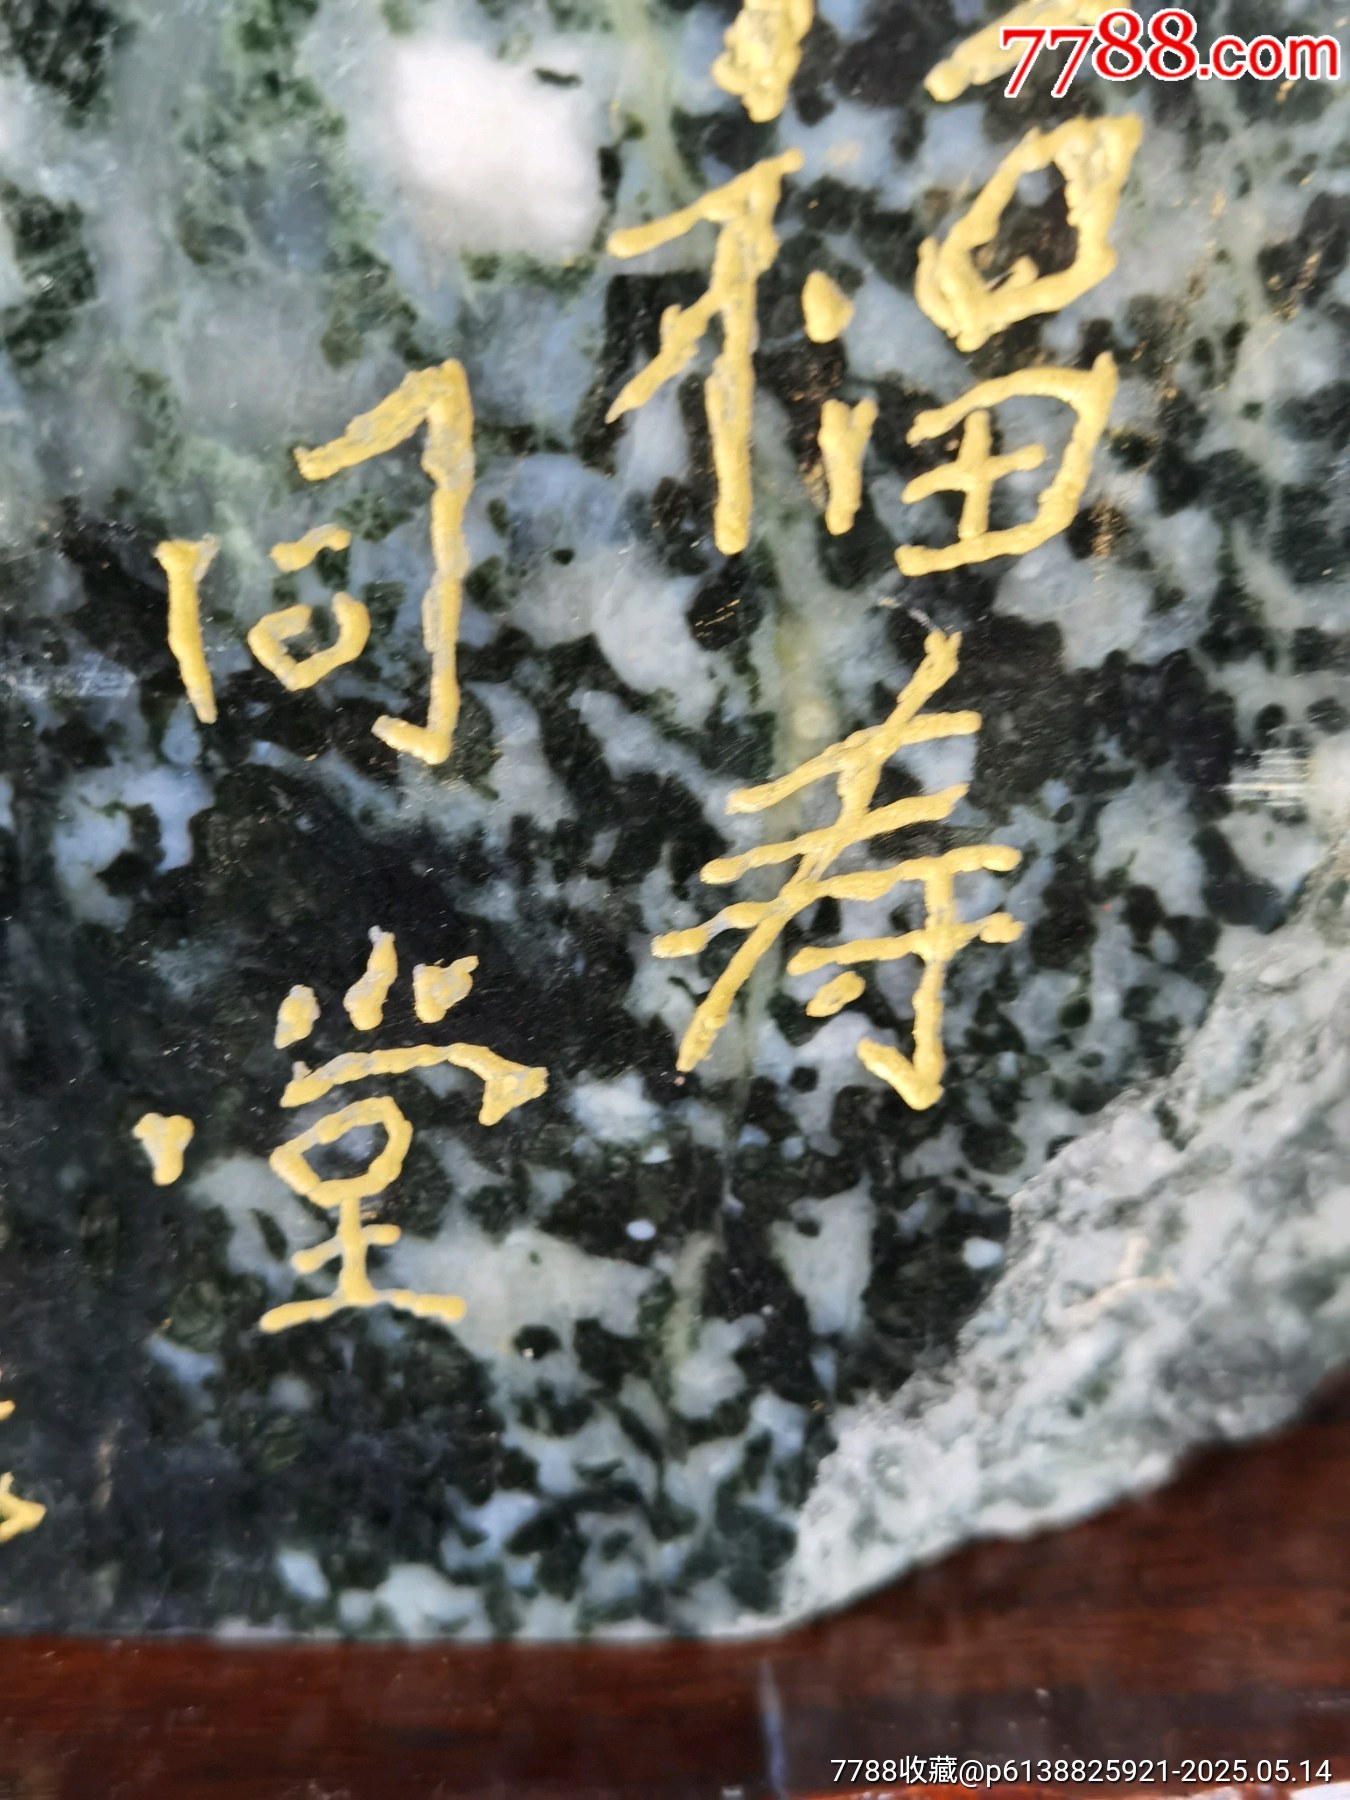 7788.com
福寿
同堂
7788收藏@p6138825921-2025.05.14